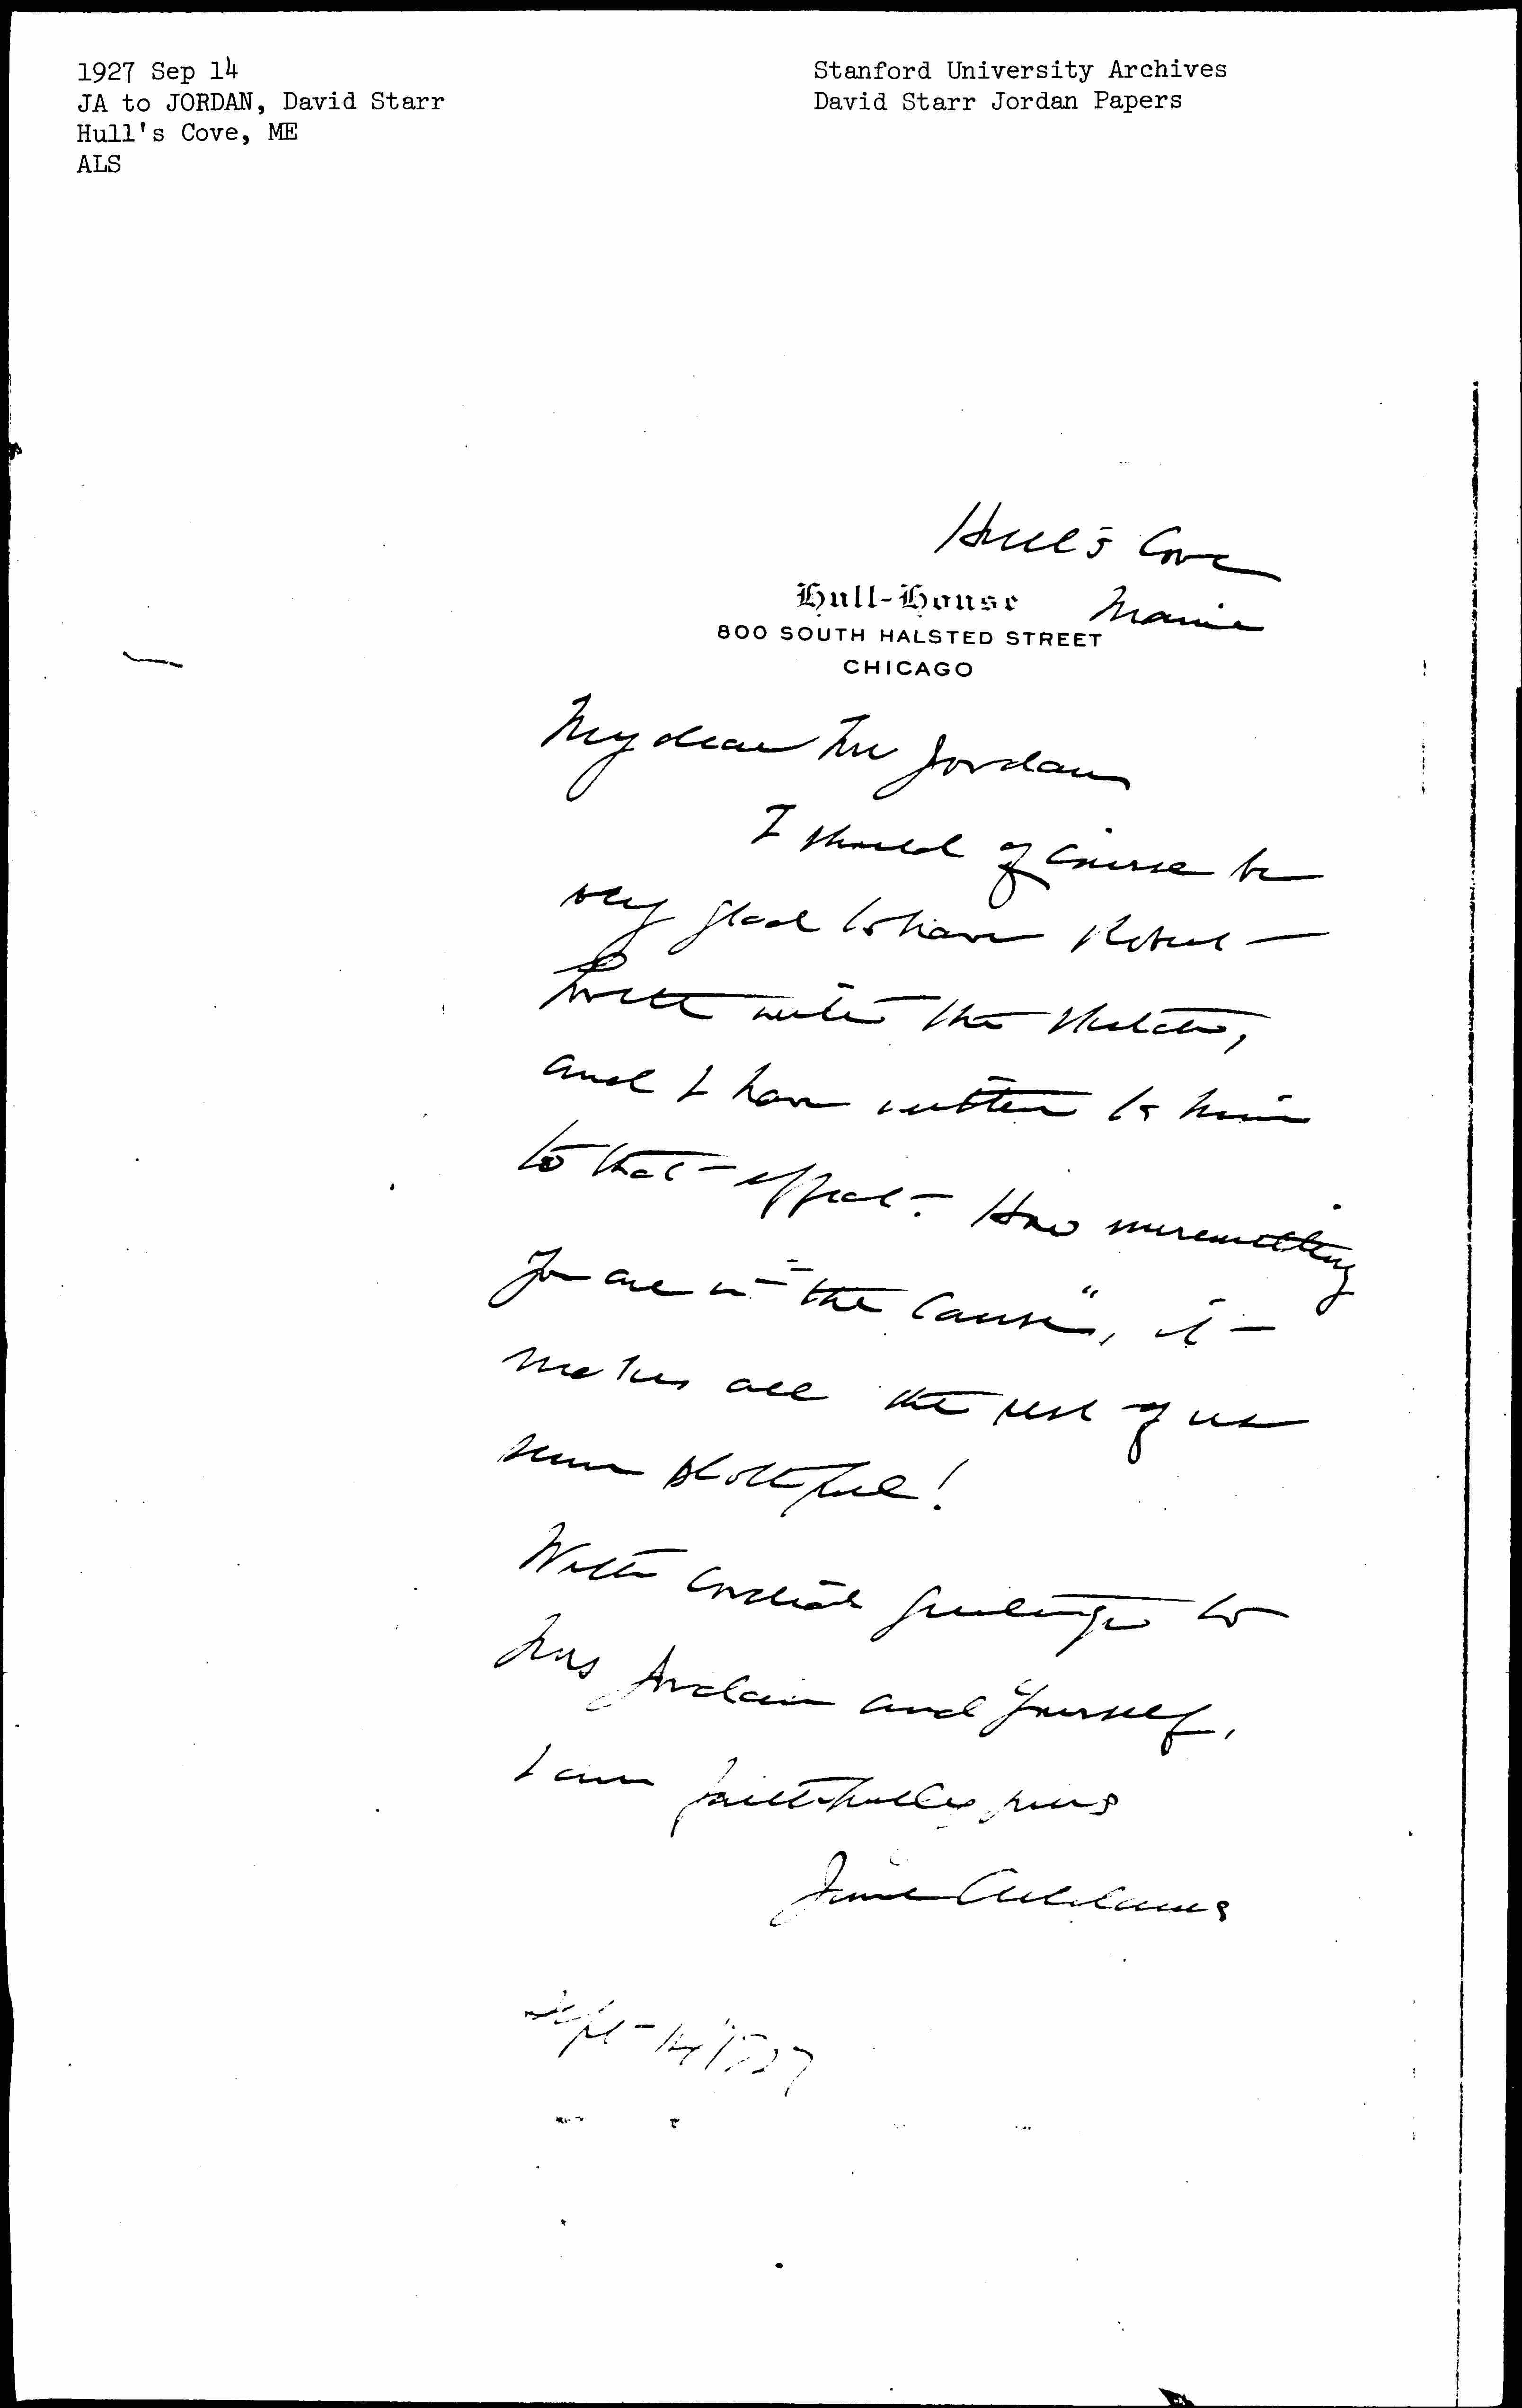 1927 Sep 14
JA to JORDAN, David Starr
Hull's Cove, ME
ALS
Stanford University Archives
David Starr Jordan Papers
Hull's Cove
Maine
Hull-House
800 SOUTH HALSTED STREET
CHICAGO
My dear Mr Jordan
I should of course be
very glad to have Robert
write the sketch,
and I have written to him
to that effect. How unremitting
you are in "the Cause", it
makes all the rest of us
seem slothful!
With cordial greetings to
Mrs Jordan and yourself,
I am faithfully yours
Jane Addams
Sept 14" 1927